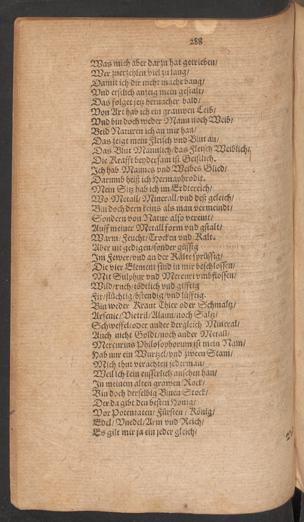 288
Was mich aber darzu hat getrieben/
Wer zuerzehlen viel zu lang/
Damit ich dir nicht mache bang/
Vnd erstlich anzeig mein gestalt/
Das folget jetz hernacher bald/
Von Art hab ich ein grauwen Leib/
Vnd bin doch weder Mann noch Weib/
Beid Naturen ich an mir han/
Das zeigt mein Fleisch vnd Blut an/
Das Blut Männlich/ das Fleisch Weiblich/
Die Krafft beydersam ist Geistlich.
Ich hab Mannes vnd Weibes Glied/
Darumb heist ich Hermaphrodit.
Mein Sitz hab ich im Erdtereich/
Wo Metall/ Minerall/ vnd deß geleich/
Bin doch dern keins als man vermeindt/
Sondern von Natur also vereint/
Auff meiner Metall form vnd gstalt/
Warm/ Feucht/ Trocken vnd Kalt.
Aber nit gedigen/ sonder güssig
Im Fewer/ vnd an der Kälte sprüssig/
Die vier Element sind in mir beschlossen/
Mit Sulphur vnd Mercuri vmbstossen/
Wild/ ruch/ tödtlich vnd gifftig
Fix/ flüchtig/ bstendig vnd lüfftig.
Bin weder Kraut Thier oder Schmaltz/
Arsenic/ Vietril/ Alaun/ noch Saltz/
Schweffel/ oder ander dergleich Mineral/
Auch nicht Goldt/ noch ander Metall/
Mercurius Philosophorum ist mein Nam/
Hab nur ein Wurtzel/ vnd zween Stam/
Mich thut verachten jederman/
Weil ich kein eusserlich ansehen han/
In meinem alten grawen Rock/
Bin doch derselbig Binen Stock/
Der da gibt den besten Honig/
Vor Potentaten/ Fürsten/ König/
Edel/ Vnedel/ Arm vnd Reich/
Es gilt mir ja ein jeder gleich/